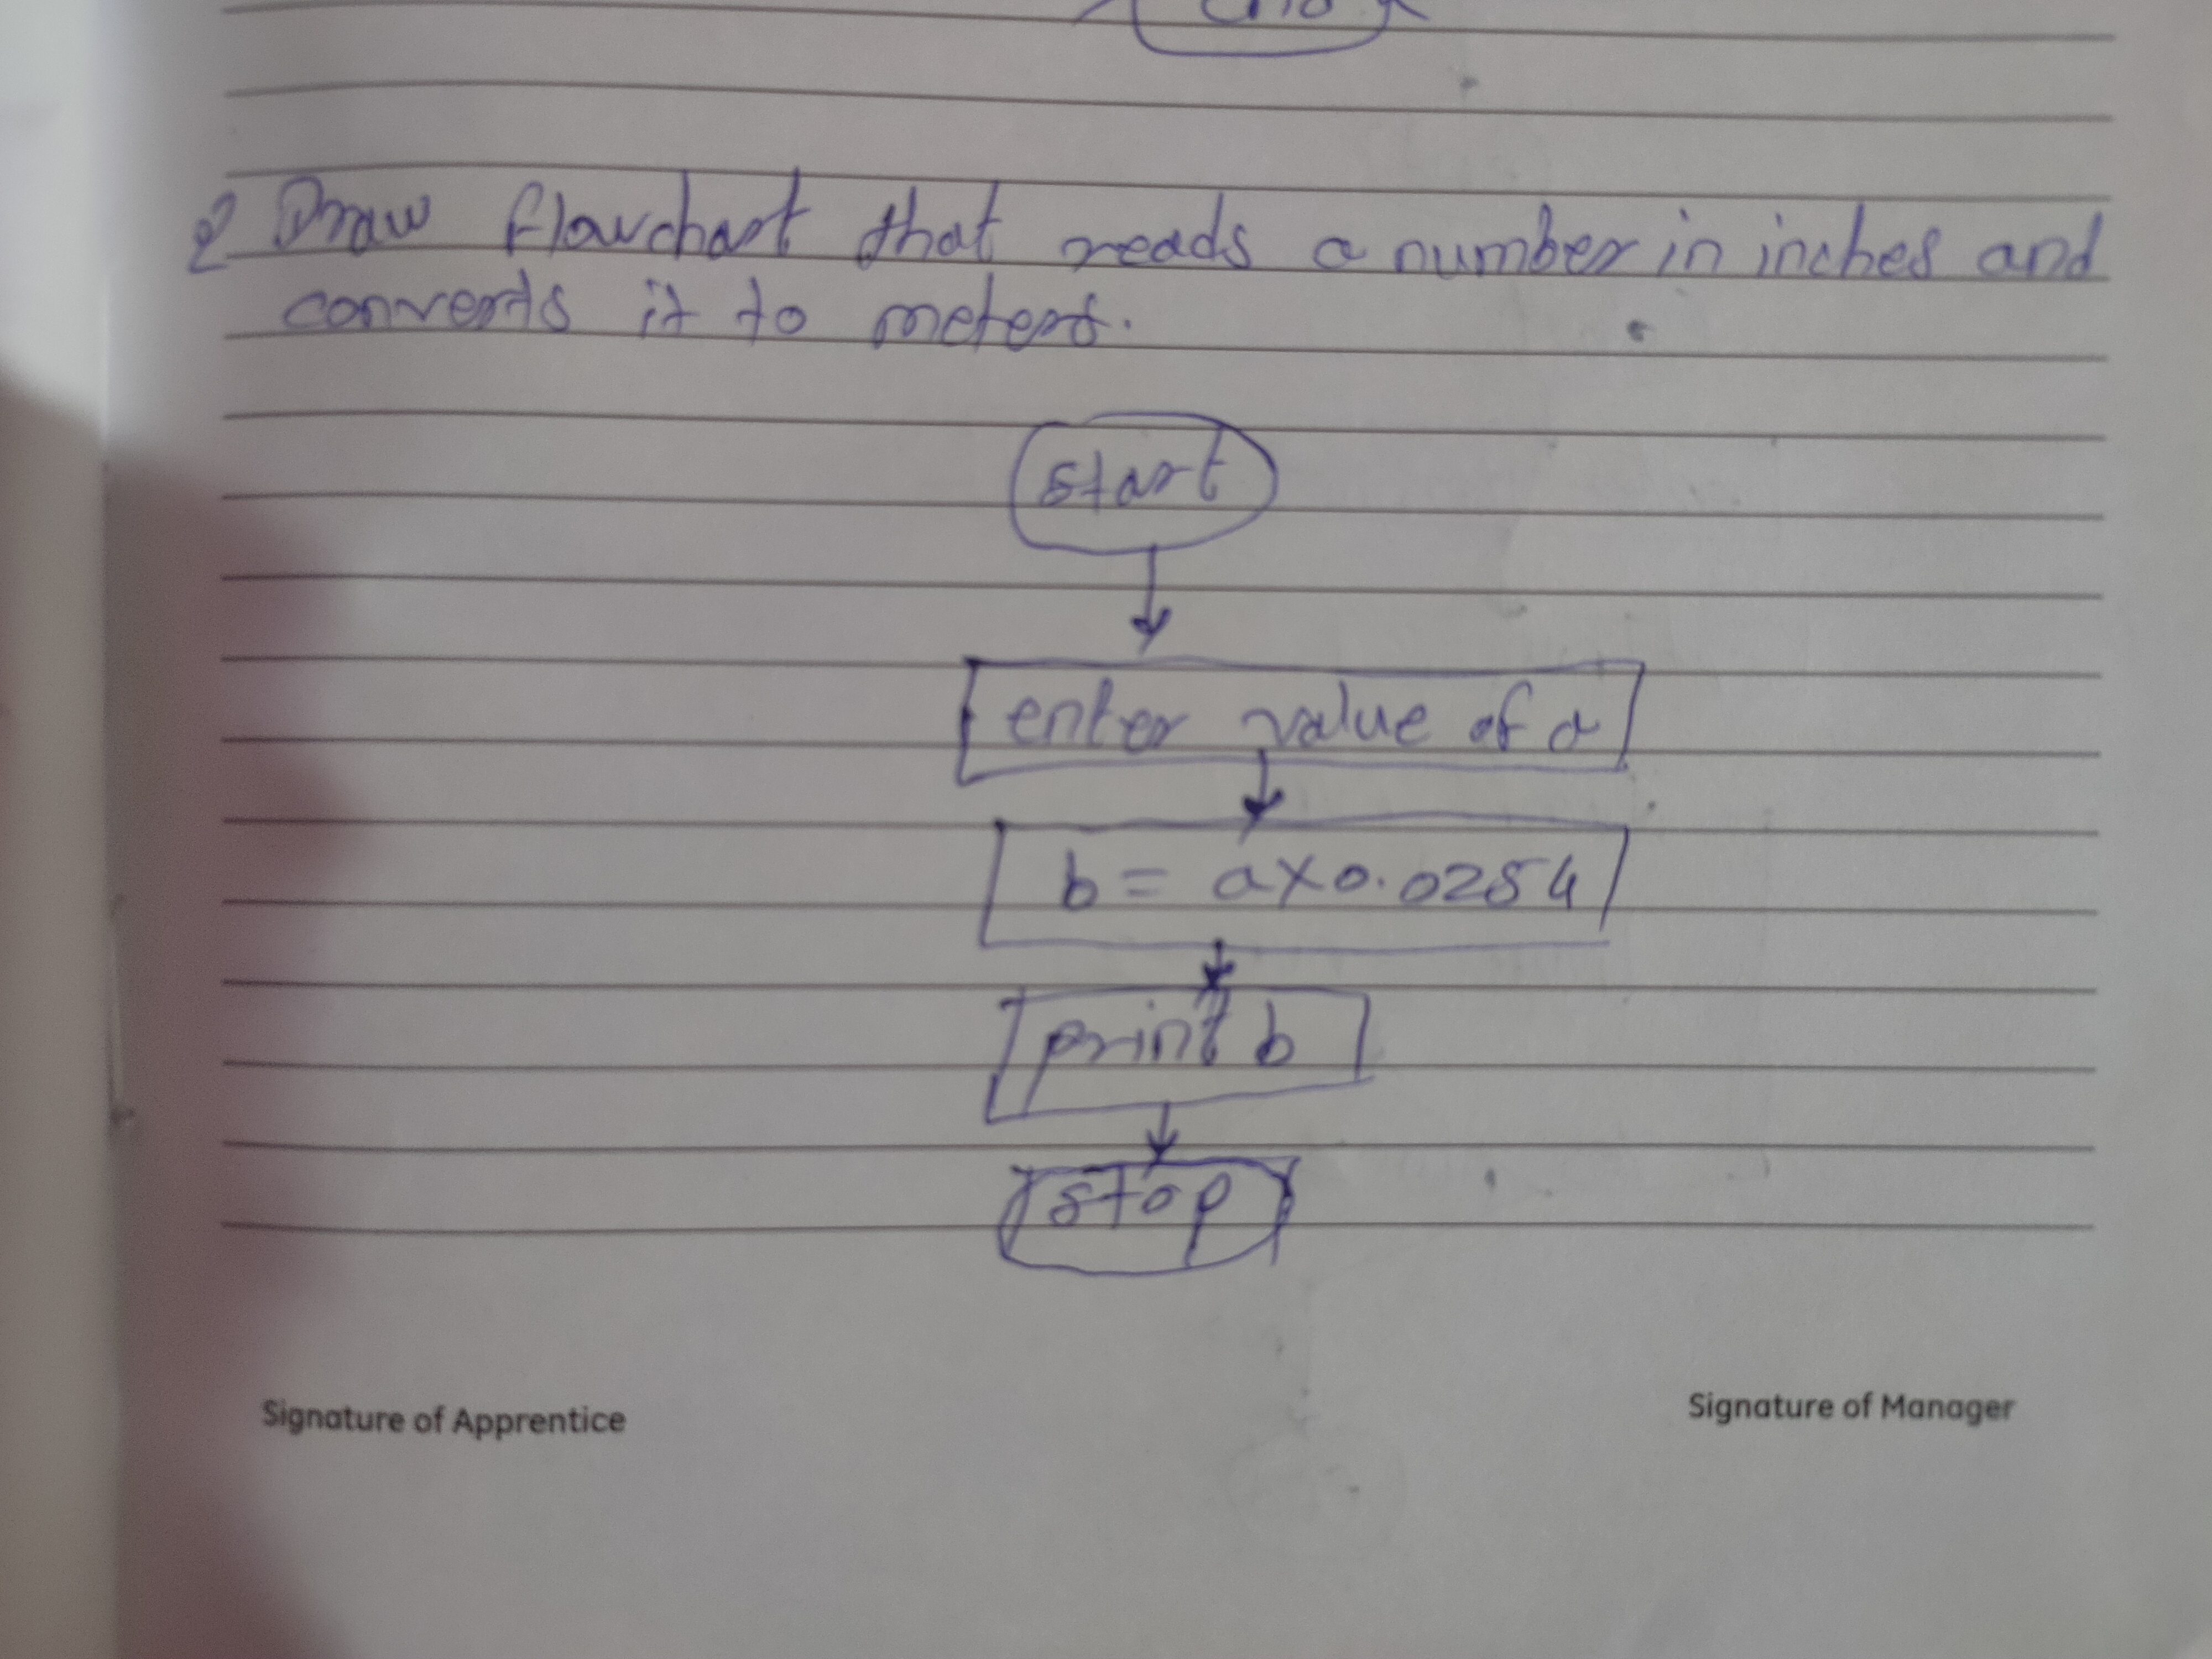 2 Draw flowchart that reads a number in inches and
converts it to meters.
start
enter value of a
b = a x 0.0254
print b
stop
Signature of Apprentice
Signature of Manager